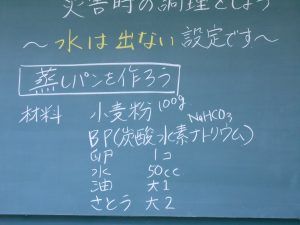 災害時の調理をしよう
～水は出ない設定です～
蒸しパンを作ろう
材料 小麦粉 100g
NaHCO3
BP(炭酸水素ナトリウム)
卵 1コ
水 50cc
油 大1
さとう 大2